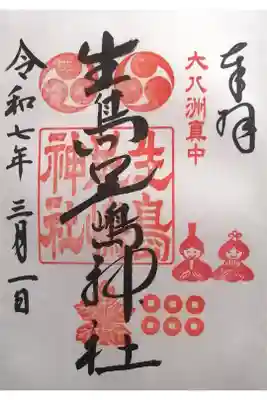 奉拝
大八洲真中
生島足嶋神社
生島足嶋神社
令和七年 三月一日